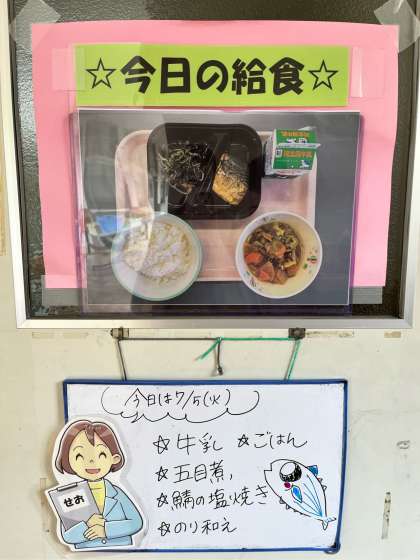 ☆今日の給食☆
今日は7/5(火)
☆牛乳 ☆ごはん
☆五目煮
☆鯖の塩焼き
☆のり和え
せお